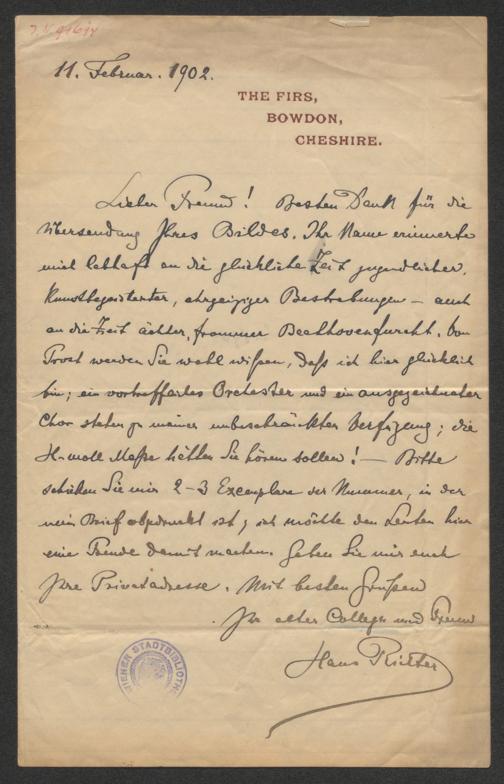 11. Februar. 1902.
THE FIRS,
BOWDON,
CHESHIRE.
Lieber Freund! Besten Dank für die
Übersendung Ihres Bildes. Ihr Name erinnerte
mich lebhaft an die glückliche Zeit jugendlicher,
kunstbegeisterter, ehrgeiziger Bestrebungen – auch
an die Zeit ächter, frommer Beethovenfurcht. Von
Trost werden Sie wohl wißen, daß ich hier glücklich
bin; ein vortreffliches Orchester und ein ausgezeichneter
Chor stehen zu meiner unbeschränkten Verfügung; die
H-moll Meße hätten Sie hören sollen! – Bitte
schicken Sie mir 2–3 Exemplare der Nummer, in der
mein Brief abgedruckt ist; ich möchte den Leuten hier
eine Freude damit machen. Geben Sie mir auch
Ihre Privatadresse. Mit besten Grüßen
Ihr alter College und Freund
Hans Richter
WIENER STADTBIBLIOTHEK